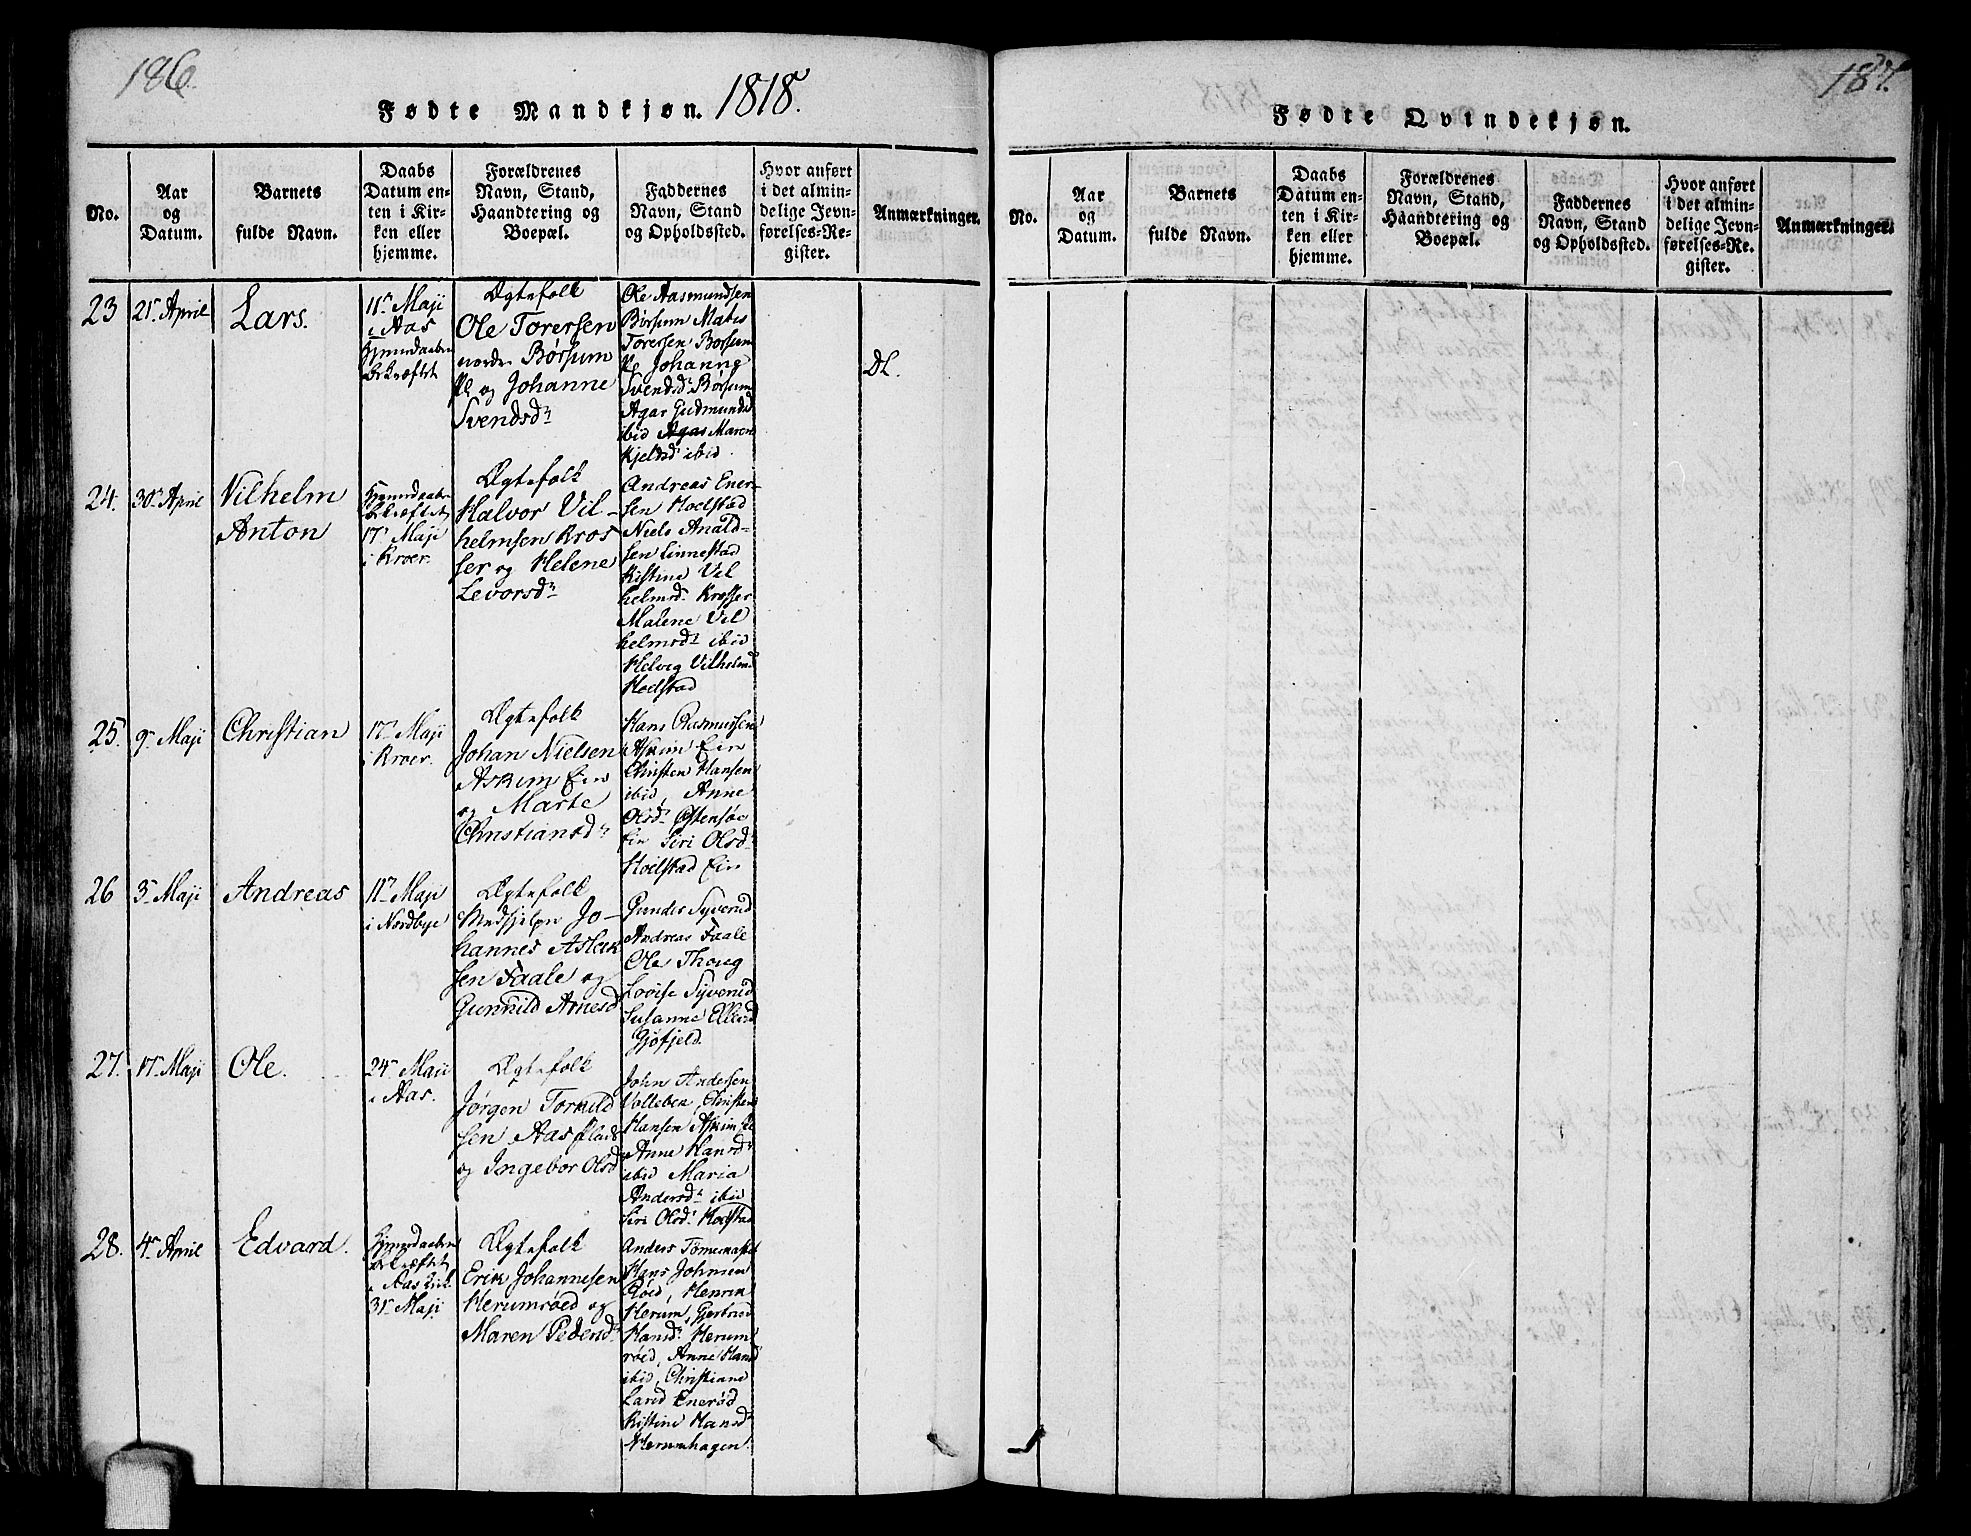 186.
Fødte Mandkjøn. 1818.
No.
Aar
og
Datum.
Barnets
fulde Navn.
Daabs
Datum en-
ten i Kir-
ken eller
hjemme.
Forældrenes
Navn, Stand,
Haandtering og
Boepæl.
Faddernes
Navn, Stand
og Opholdssted.
Hvor anført
i det almin-
delige Jevn-
førelses-Re-
gister.
Anmærkninger.
23
21 April
Lars.
11 Maji
i Aas
Hjemmedaaben
bekræftet
Ægtefolk
Ole Torersen
nordre Børsum
Pl og Johanne
Svendsdr
Ole Aasmundsen
Børsum Matis
Torersen Borsum
Pl Johanne
Svendsd Børsum
Agar Gudmundsd
ibid Maren
Kjeldsd ibid
Dl.
24.
30 April
Vilhelm
Anton
Hjemmedaaben
bekræftet
17 Maji
i Kroer.
Ægtefolk
Halvor Vil-
helmsen Kros
ser og Helene
Levorsdr
Andreas Ener-
sen Hoelstad
Niels Anald-
sen Linnestad
Kistine Vil
helmsd Krosser
Malene Vil
helmsdr ibid
Helvig Vilhelmsd
Hoelstad
25.
9 Maji
Christian
17 Maji
i Kroer.
Ægtefolk
Johan Nielsen
Askim Eie
og Marte
Christiansdr
Hans Rasmussen
Askim Eie
Christen Hansen
ibid, Anne
Olsd Østensøe
Eie Siri Olsd
Hoelstad Eie
26
3 Maji
Andreas
11 Maji
i Nordbye
Ægtefolk
Medhjelper Jo-
hannes Aslak
sen Faale og
Gunhild Arnesd
Gunder Syverud
Andreas Faale
Ole Thoug
Lovise Syverud
Susanne
Gjøfjeld.
27.
17 Maji
Ole.
24 Maji
i Aas.
Ægtefolk
Jørgen Torkild
sen Aas
og Ingebor Olsd
John Andersen
Volleben, Christen
Hansen Askim
Anne Hansd
ibid Maria
Andersd ibid
Siri Olsd Hoelstad
28.
4 April
Edvard.
Hjemmedaaben
bekræftet
i Aas Kirk.
31 Maji
Ægtefolk
Erik Johannesen
Herumrøed og
Maren Pedersd
Anders
Hans Johnsen
Røed, Henrik
Herum, Gjertrud
Hansd Herum
røed, Anne Hansd
ibid, Christiane
Larsd Enerød
Kistine Hansd
Herumhagen.
187.
Fødte Qvindekjøn.
No.
Aar
og
Datum.
Barnets
fulde Navn.
Daabs
Datum en-
ten i Kir-
ken eller
hjemme.
Forældrenes
Navn, Stand,
Haandtering og
Boepæl.
Faddernes
Navn, Stand
og Opholdssted.
Hvor anført
i det almin-
delige Jevn-
førelses-Re-
gister.
Anmærkninger.